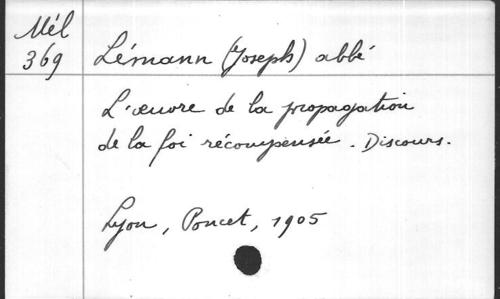 Mél
369
Lémann (Joseph) abbé
L'œuvre de la propagation
de la foi récompensée. Discours.
Lyon, Poncet, 1905